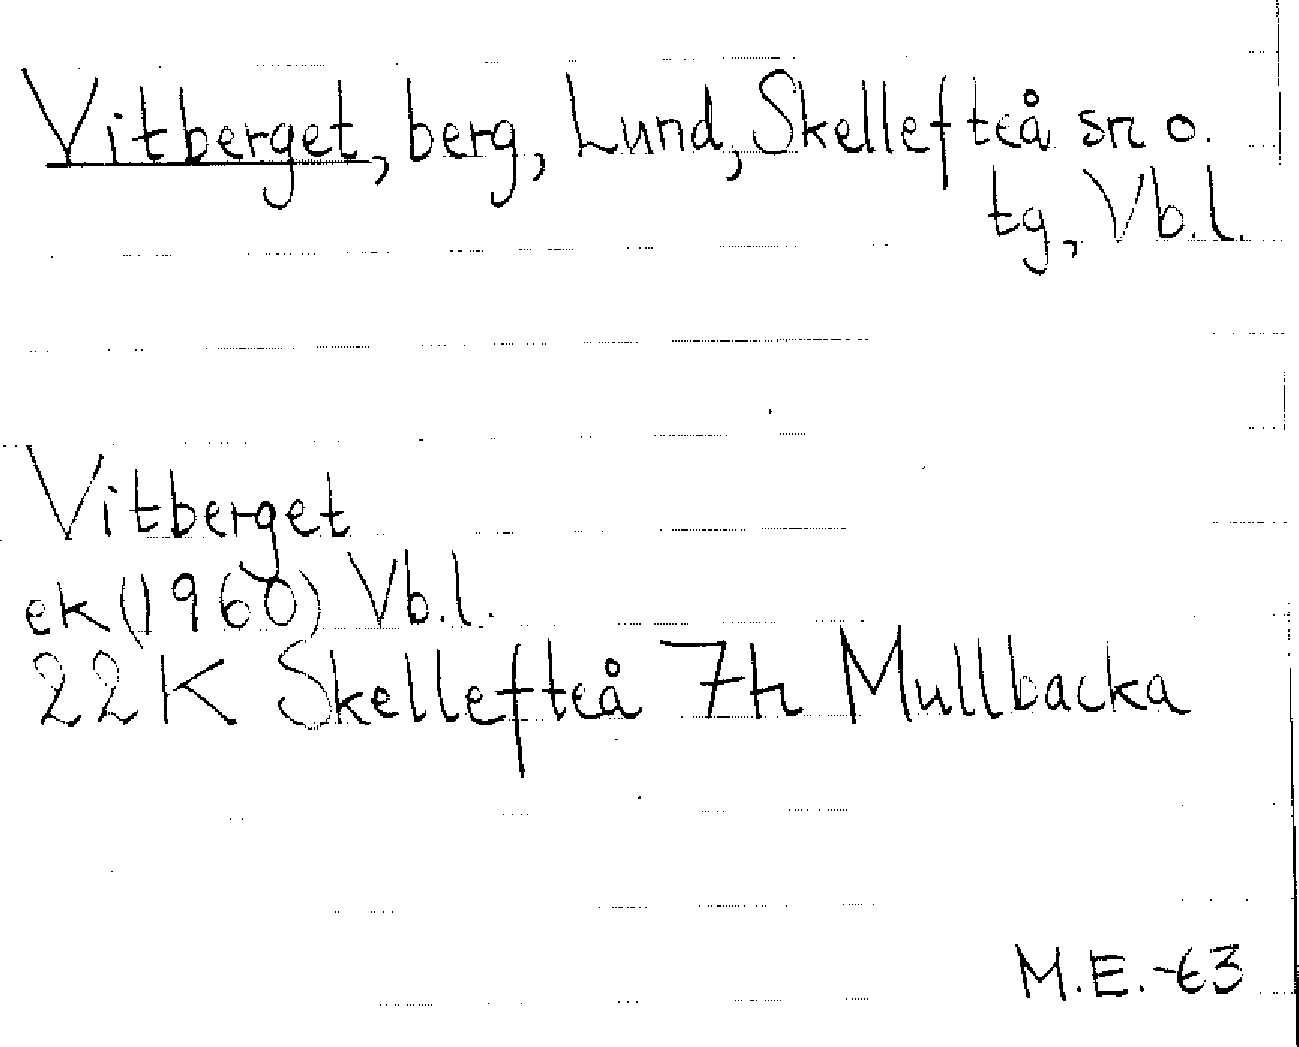 Vitberget, berg, Lund, Skellefteå sn o.
tg, Vb.l.
Vitberget
ek (1960) Vb.l.
22K Skellefteå 7h Mullbacka
M.E.-63